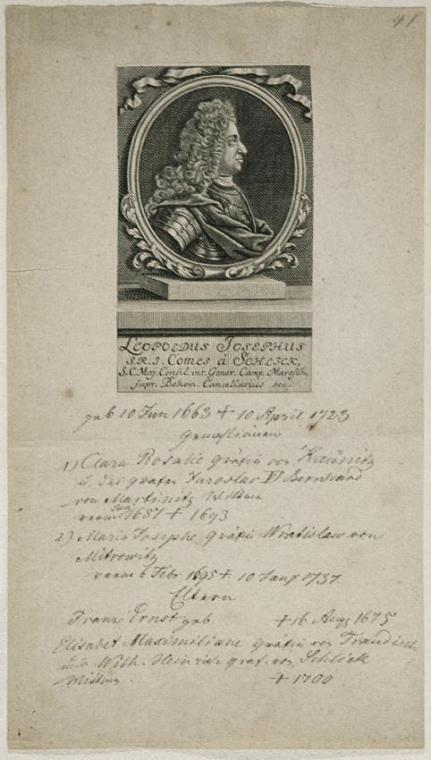 41
LEOPOLDUS JOSEPHUS
S.R.I. Comes à SCHLICK,
S.C. Maj. Consil. int. Gener. Camp. Maresch.
supr. Bohem. Cancellarius etc.
geb 10 Jun 1663 + 10 April 1723
Gemahlinnen
1) Clara Rosalie gräfin von Kaunitz
u. des grafen Jaroslav Bernhard
von Martinitz Wittwe
verm 1687 + 1693
2) Maria Josepha gräfin Wratislaw von
Mitrowitz
verm 6 Febr 1695 + 10 1737.
Eltern
Franz Ernst geb + 16 Aug 1675
Elisabet Maximiliane gräfin von
und Wilh. Heinrich graf. von Schlick
+ 1700